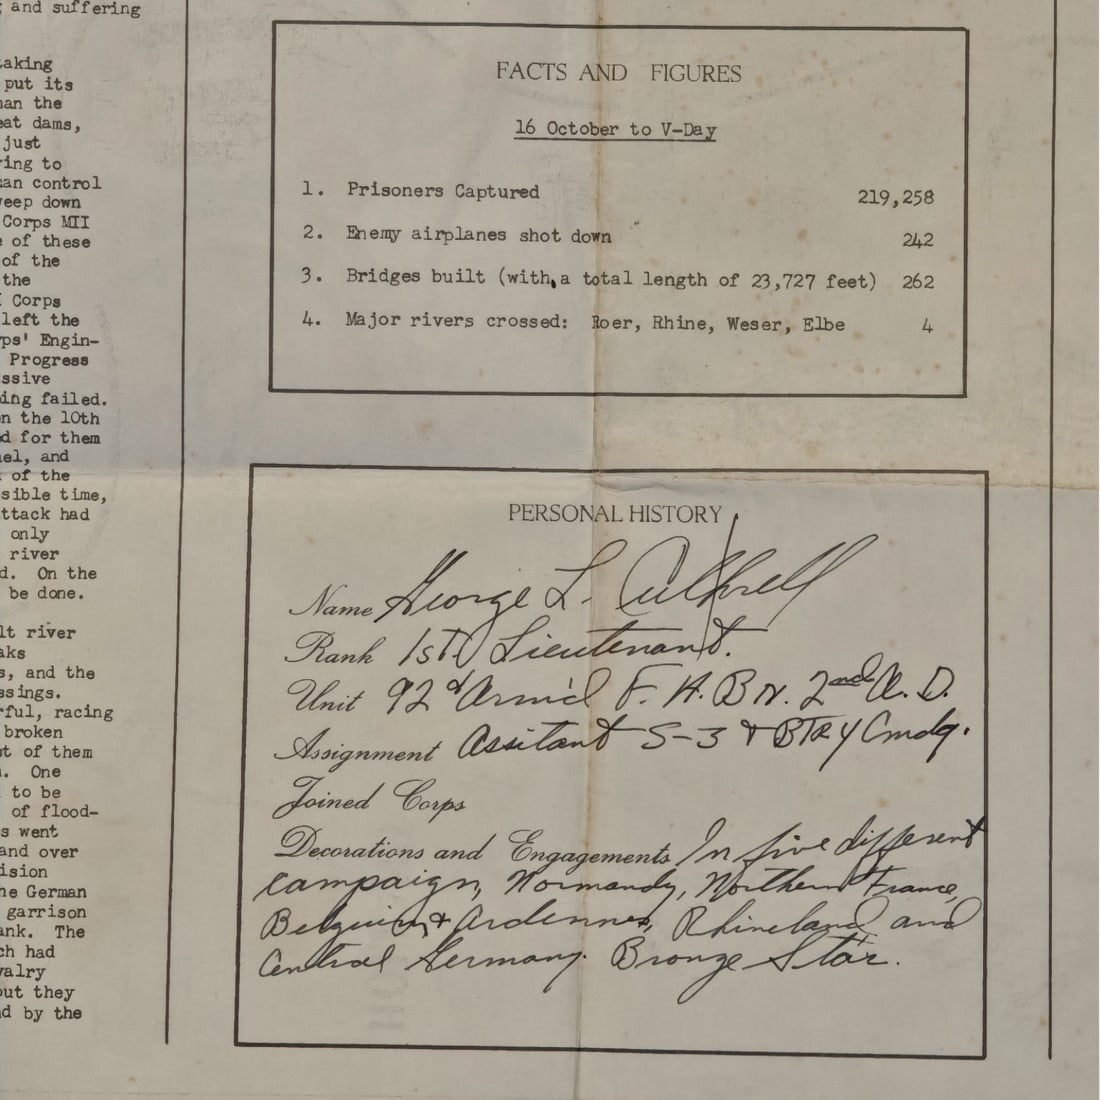 g and suffering
taking
put its
han the
eat dams,
just
ring to
can control
weep down
Corps MII
e of these
of the
the
Corps
left the
rps' Engin-
Progress
ssive
ing failed.
on the 10th
d for them
nel, and
of the
sible time,
attack had
only
river
d. On the
be done.
lt river
aks
s, and the
ssings.
rful, racing
broken
nt of them
. One
to be
of flood-
s went
and over
ision
he German
garrison
ank. The
ch had
valry
but they
d by the
FACTS AND FIGURES
16 October to V-Day
1. Prisoners Captured 219,258
2. Enemy airplanes shot down 242
3. Bridges built (with a total length of 23,727 feet) 262
4. Major rivers crossed: Roer, Rhine, Weser, Elbe 4
PERSONAL HISTORY
Name George L. Cuthrell
Rank 1st Lieutenant.
Unit 92d Arm'd F. A. Bn. 2nd A. D.
Assignment Assitant S-3 & BTRY Cmdg.
Joined Corps
Decorations and Engagements In five different
campaign, Normandy, Northern France,
Belguim & Ardennes, Rhineland and
Central Germany. Bronze Star.